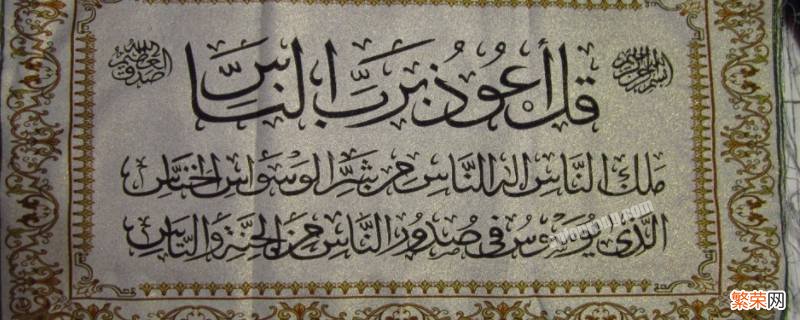 بسم الله الرحمن الرحيم
قل أعُوذُ برَبِّ النَّاسِ
صدق الله العظيم
ملك النَّاس اله النَّاس من شَرِّ الوَسوَاس الخنَّاس
الَّذي يُوَسوسُ في صُدُور النَّاس منَ الجنَّة وَالنَّاس
繁荣网